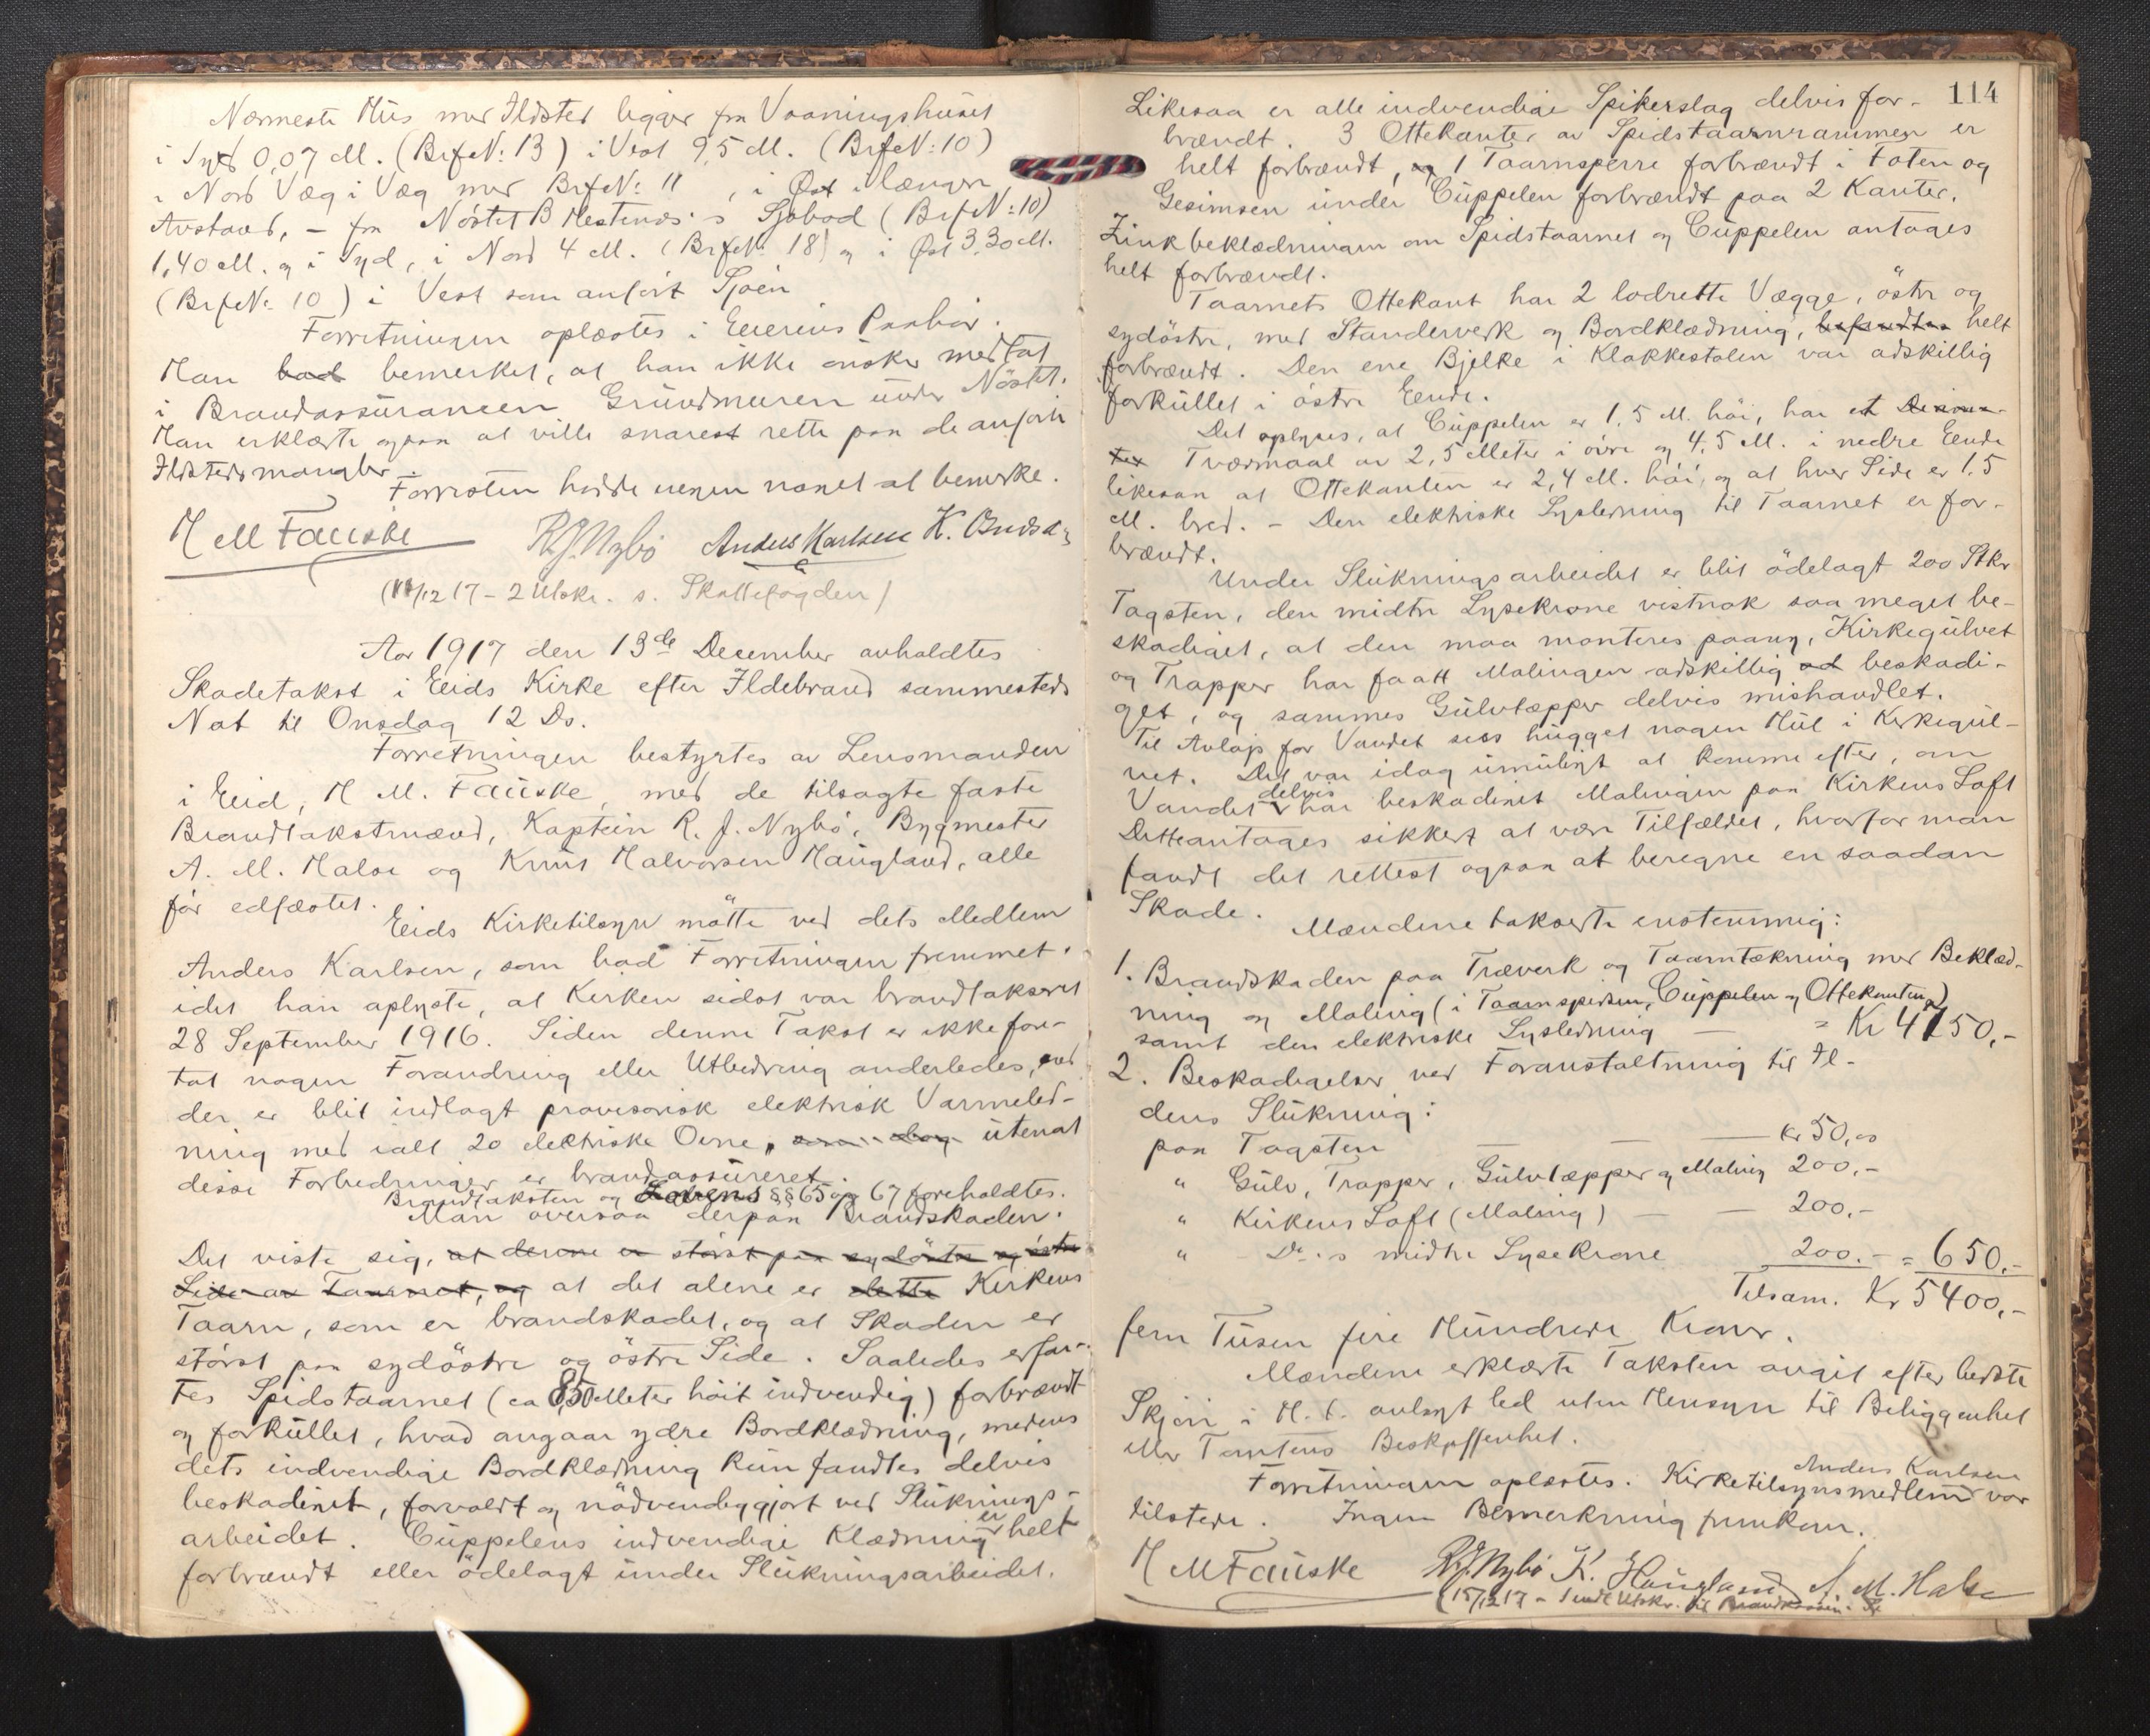 Nærmeste Hus med Ildsted ligger fra Vaaningshuset
i Syd 0,07 M. (Brf.N: 13) i Vest 9,5 M. (Brf.N: 10)
i Nord Væg i Væg med Brf.N: 11, i Øst i længer
Avstand, - fra Nöstet B Hestenes's Sjöbod (Brf.N: 10)
1,40 M. og i Syd, i Nord 4 M. (Brf.N: 18) og i Öst 3,30 M.
(Brf.N: 10) i Vest som anfört Sjöen
Forretningen oplæstes i Eierens Paahör.
Han bad bemerket, at han ikke önsker medtat
i Brandassuranceen Grundmuren under Nöstet.
Han erklærte ogsaa at ville snarest rette paa de anförte
Ildstedsmangler.
Forresten hadde ingen noget at bemerke.
H M Fauske R J. Nybö Anders Karlsen K.
(14/12 17 - 2 Utskr. s. Skattefogden)
Aar 1917 den 13de December avholdtes
Skadetakst i Eids Kirke efter Ildebrand sammesteds
Nat til Onsdag 12 Ds.
Forretningen bestyrtes av Lensmanden
i Eid, H M. Fauske, med de tilsagte faste
Brandtakstmænd, Kaptein R. J. Nybö, Bygmester
A. M. Halse og Knut Halvorsen Haugland, alle
för edfæstet.
Eids Kirketilsyn mötte ved dets Medlem
Anders Karlsen, som bad Forretningen fremmet,
idet han oplyste, at Kirken sidst var brandtaksert
28 September 1916. Siden denne Takst er ikke fore-
tat nogen Forandring eller Utbedring anderledes, end
der er blit indlagt provisorisk elektrisk Varmeled-
ning med ialt 20 elektriske Ovne, utenat
disse Forbedringer er brandassureret.
Brandtaksten og Lovens §§ 65 og 67 foreholdtes.
Man oversaa derpaa Brandskaden.
Det viste sig, at denne er störst paa sydöstre og östre
Side av Taarnet, og at det alene er dette Kirkens
Taarn, som er brandskadet, og at Skaden er
störst paa sydöstre og östre Side. Saaledes erfar-
tes Spidstaarnet (ca 8,50 Meter höit indvendig) forbrændt
og forkullet, hvad angaar ydre Bordklædning, medens
dets indvendige Bordklædning kun fandtes delvis
beskadiget, forvoldt og nödvendiggjort ved Sluknings-
arbeidet. Cuppelens indvendige Klædning er helt
forbrændt eller ödelagt under Slukningsarbeidet.
114
Likesaa er alle indvendige Spikerslag delvis for-
brændt. 3 Ottekanter av Spidstaarnrammen er
helt forbrændt, og 1 Taarnsperre forbrændt i Foten og
Gesimsen under Cuppelen forbrændt paa 2 Kanter.
Zinkbeklædningen om Spidstaarnet og Cuppelen antages
helt forbrændt.
Taarnets Ottekant har 2 lodrette Vægge, östre og
sydöstre, med Standerverk og Bordklædning, befandtes helt
forbrændt. Den ene Bjelke i Klokkestolen var adskillig
forkullet i östre Ende.
Det oplyses, at Cuppelen er 1,5 M. höi, har et Diame-
ter Tværmaal av 2,5 Meter i övre og 4,5 M. i nedre Ende
likesaa at Ottekanten er 2,4 M. höi, og at hver Side er 1,5
M. bred. - Den elektriske Lysledning til Taarnet er for-
brændt.
Under Slukningsarbeidet er blit ödelagt 200 Stkr
Tagsten, den midtre Lysekrone vistnok saa meget be-
skadiget, at den maa monteres paany, Kirkegulvet
og Trapper har faatt Malingen adskillig beskadi-
get, og sammes Gulvtæpper delvis mishandlet.
Til Avlöp for Vandet sees hugget nogen Hul i Kirkegul-
vet. Det var idag umuligt at komme efter, om
Vandet delvis har beskadiget Malingen paa Kirkens Loft
Dette antages sikkert at være Tilfældet, hvorfor man
fandt det rettest ogsaa at beregne en saadan
Skade.
Mændene takserte enstemmig:
1. Brandskaden paa Træverk og Taarntækning med Beklæd-
ning og Maling (i Taarnspidsen, Cuppelen og Ottekanten)
samt den elektriske Lysledning — = Kr 4750,-
2. Beskadigelser ved Foranstaltning til Il-
dens Slukning:
paa Tagsten — — — Kr 50,00
" Gulv, Trapper, Gulvtæpper og Maling 200,-
" Kirkens Loft (Maling) — — 200,-
" Do.s midtre Lysekrone 200.- = 650,-
Tilsam. Kr 5400,-
fem Tusen fire Hundrede Kroner.
Mændene erklærte Taksten avgit efter bedste
Skjön i H. t. avlagt Ed uten Hensyn til Beliggenhet
eller Tomtens Beskaffenhet.
Forretningen oplæstes. Kirketilsynsmedlem Anders Karlsen var
tilstede. Ingen Bemerkning fremkom.
H M Fauske R J. Nybö K. Haugland A. M. Halse
(15/12 17 - 1 Utskr. til Brandkassen.